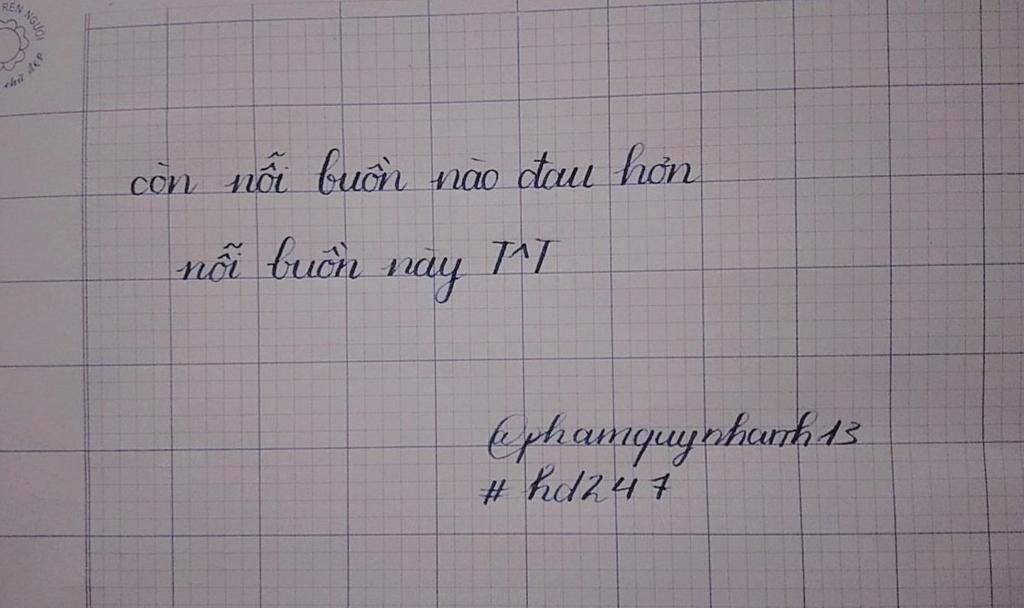 RÈN NGƯỜI
chữ đẹp
còn nỗi buồn nào đau hơn
nỗi buồn này T^T
@phamquynhanh13
#hd247